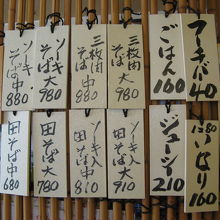 フーチバー 40
ごはん 160
三枚肉
そば 大
980
三枚肉
そば 中
880
ソーキ
そば 大
980
ソーキ
そば 中
880
いなり 160
ジューシー 210
ソーキ入
そば 大
910
ソーキ入
そば 中
810
田そば 大
780
田そば 中
680